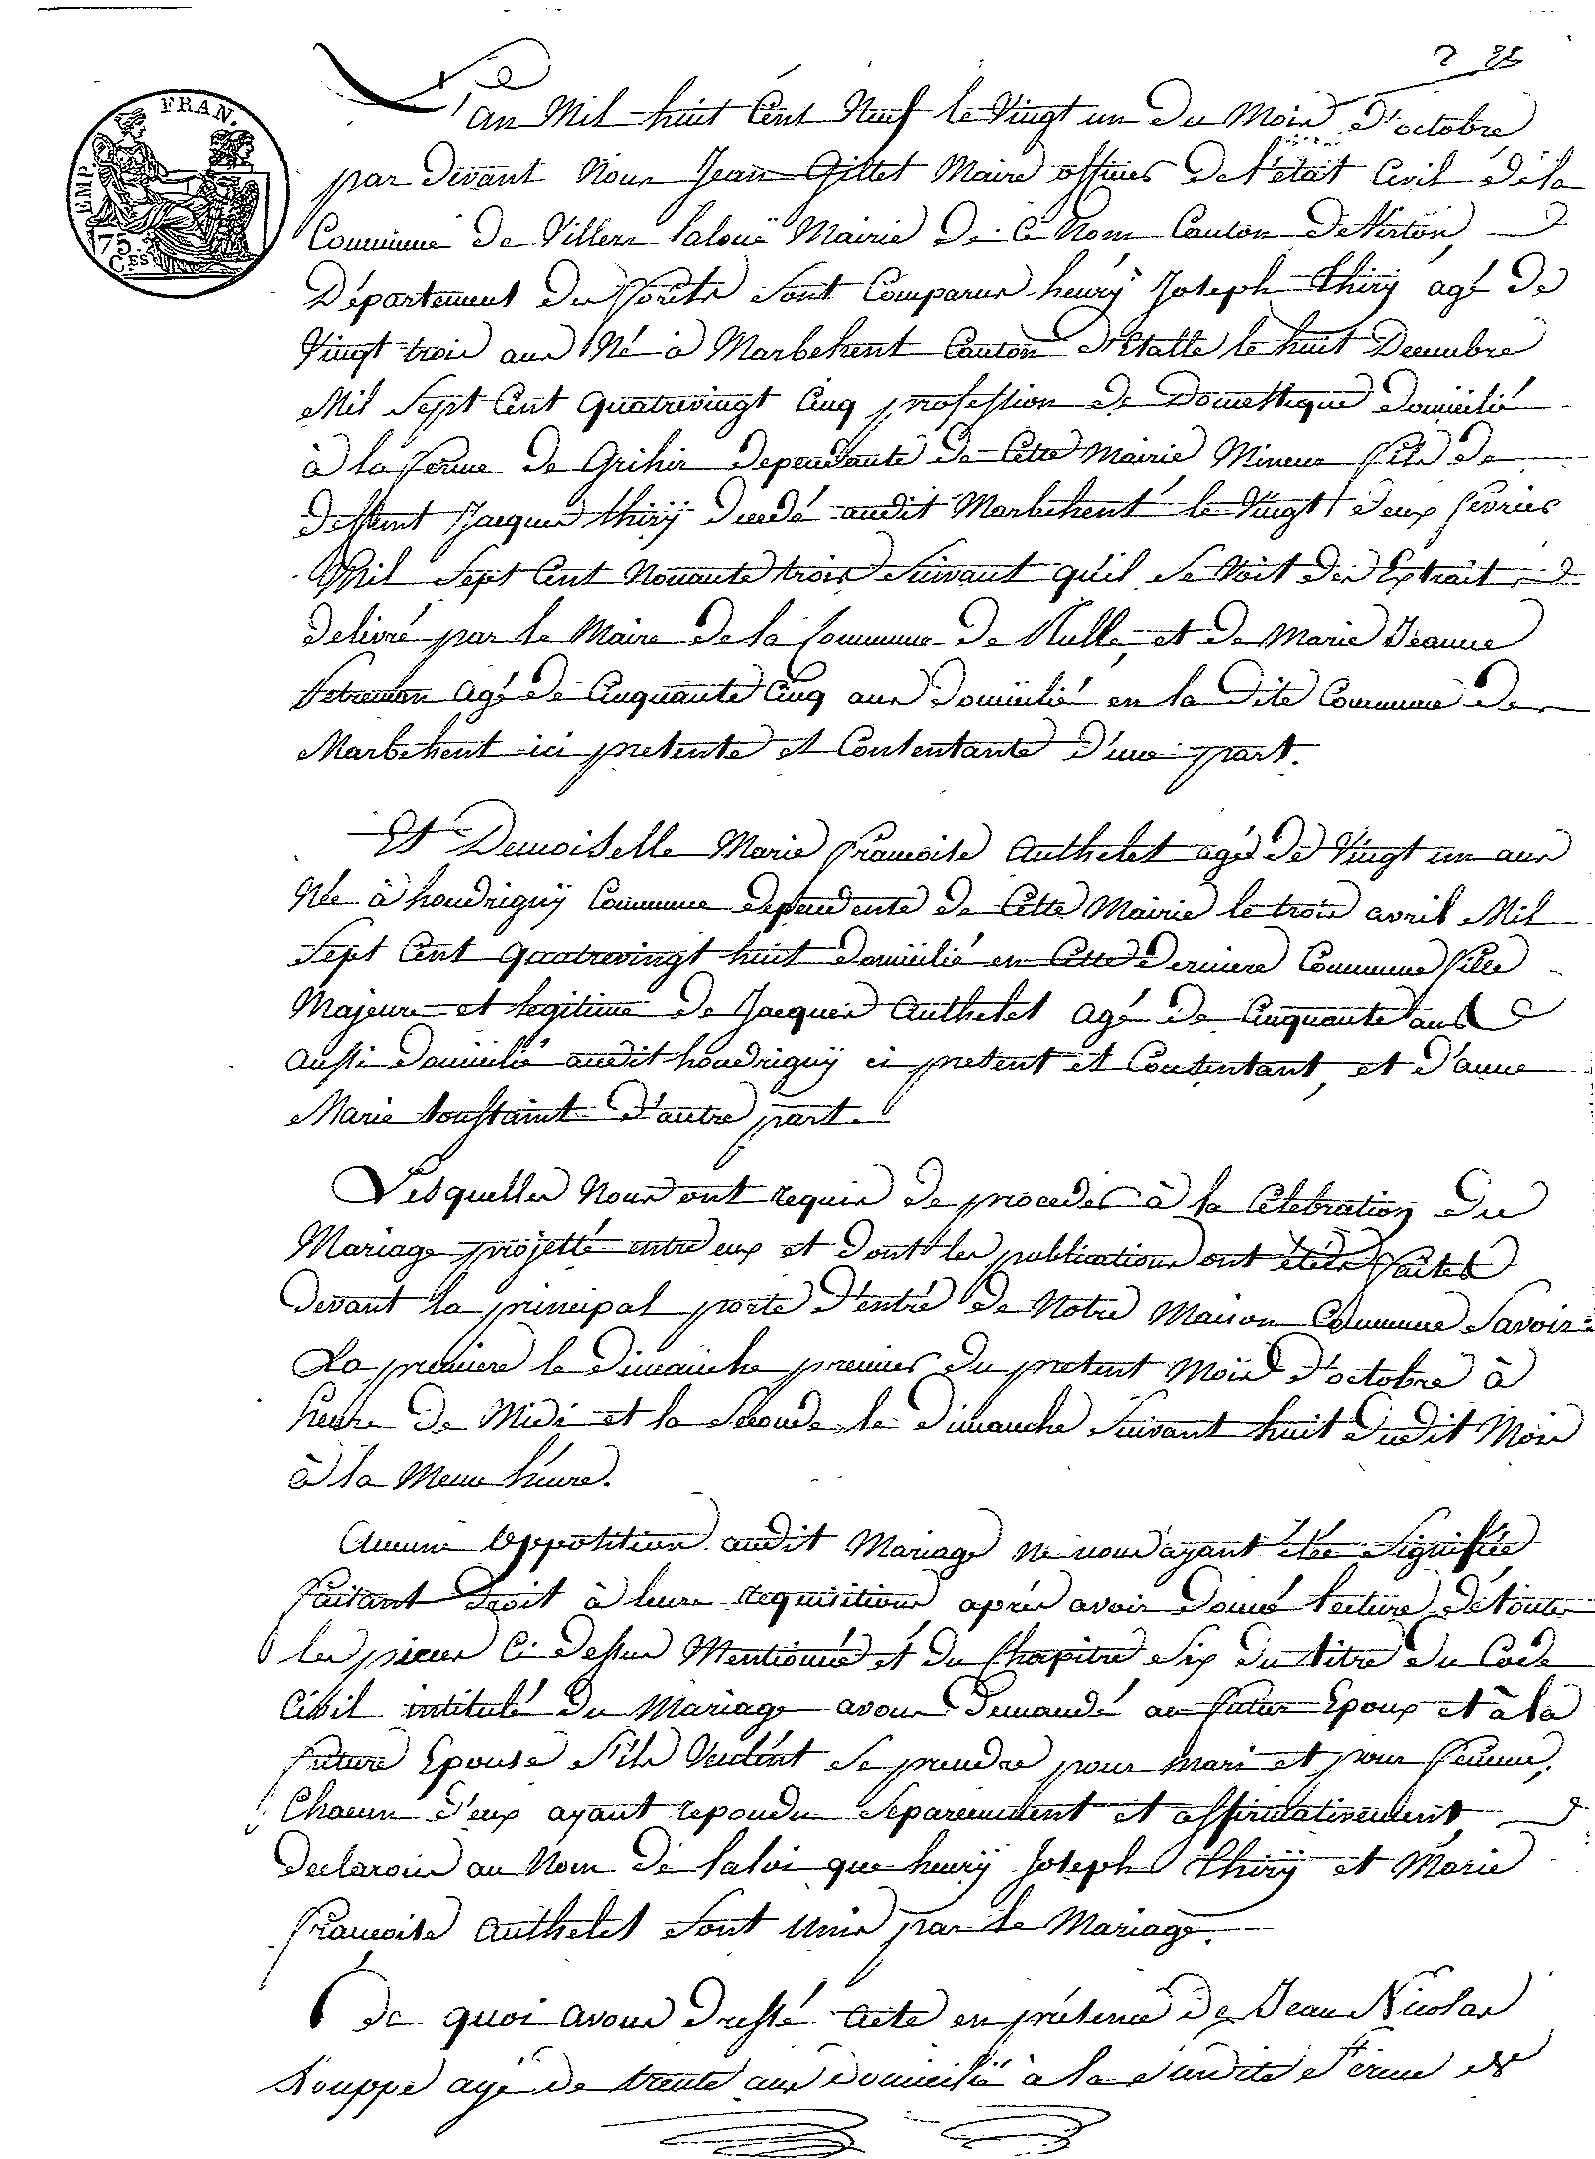 2 35
EMP. FRAN.
75. Ces
L'an Mil huit Cent Neuf le Vingt un du Mois d'octobre
par divant Nous Jean Gillet Maire officier de l'état Civil de la
Commune de Villers laloue Mairie de ce Nom Canton de Virton
Département des forêts sont Comparus henrÿ Joseph thirÿ agé de
Vingt trois ans Né à Marbehent Canton d'Etalle le huit Decembre
Mil Sept Cent Quatrevingt Cinq profession de Domestique domicilié
à la ferme de Grihir dependante de Cette Mairie Mineur fils de
deffunt Jacques thirÿ decedé audit Marbehent le Vingt deux fevrier
Mil Sept Cent Nonante trois Suivant qu'il Se Voit des Extrait
delivré par le Maire de la Commune de Rulle, et de Marie Jeanne
agé de Cinquante Cinq ans domicilié en la dite Commune de
Marbehent ici presente et Consentante d'une part.
Et Demoiselle Marie francoise Authelet agé de Vingt un ans
Née à houdrignÿ Commune dependente de Cette Mairie le trois avril Mil
Sept Cent Quatrevingt huit domicilié en Cette derniere Commune fille
Majeure et legitime de Jacques Authelet agé de Cinquante ans
aussi domicilié audit houdrignÿ ci present et Consentant, et d'anne
Marie toussaint d'autre part.
Lesquelles Nous ont requis de proceder à la Célébration du
Mariage projetté entre eux et dont les publications ont étées faites
devant la principal porte d'entré de Notre Maison Commune Savoir
La premiere le dimanche premier du present Mois d'octobre à
heure de Midi et la Seconde le dimanche Suivant huit dudit Mois
à la Meme heure.
Aucune opposition audit Mariage ne nous ayant étée Signifiée
faisant droit à leurs requisitions aprés avoir donné lecture de toutes
les pieces Ci dessus Mentionnée et du Chapitre Six du titre du Code
Civil intitulé du Mariage avons demandé au futur Epoux et à la
future Epouse s'ils Veulent Se prendre pour Mari et pour femme,
Chacun d'eux ayant repondu Separement et affirmativement
declarons au Nom de la loi que henrÿ Joseph thirÿ et Marie
francoise Authelet Sont Unis par le Mariage.
de quoi avons dressé Acte en présence de Jean Nicolas
Souppe agé de trente ans domicilié à la Sudite ferme de